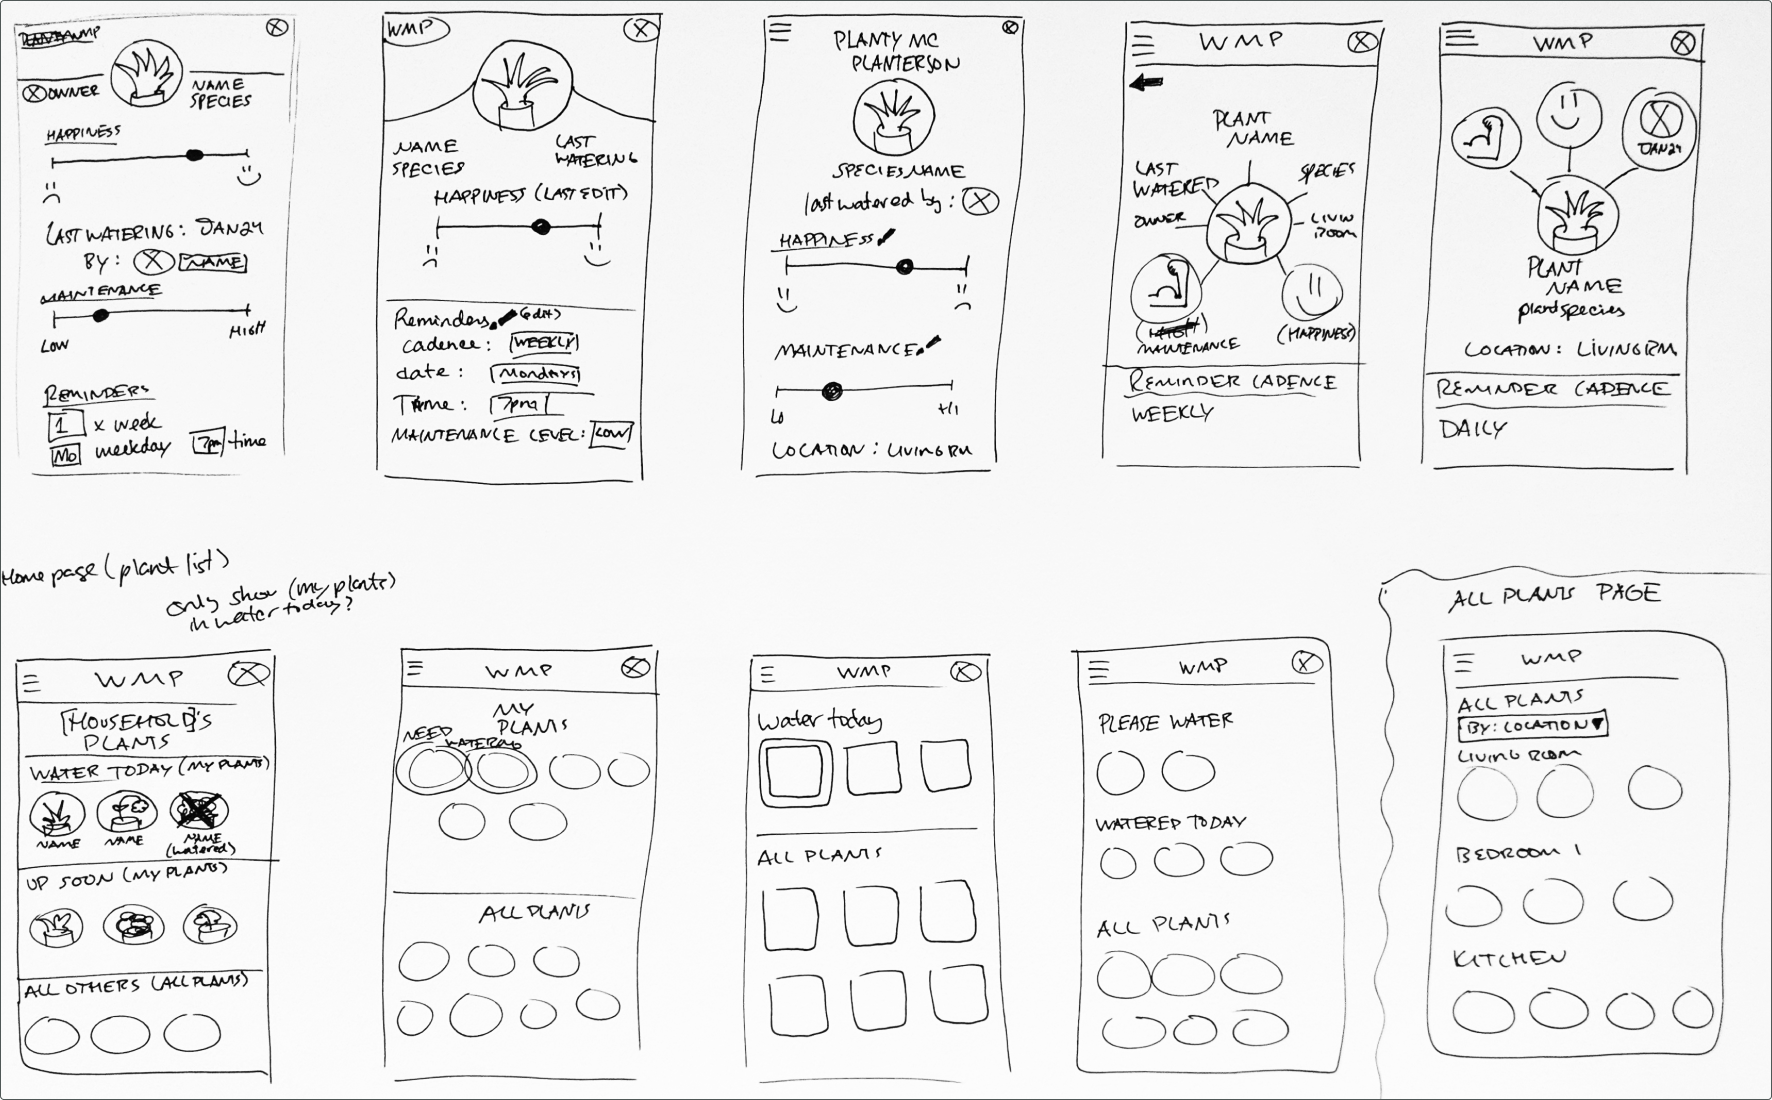 WMP
OWNER
NAME
SPECIES
HAPPINESS
LAST WATERING: JAN24
BY: NAME
MAINTENANCE
LOW
HIGH
REMINDERS
1 x week
Mo weekday 7pm time
WMP
NAME
SPECIES
LAST
WATERING
HAPPINESS (LAST EDIT)
Reminders (edit)
cadence: WEEKLY
date: Mondays
Time: 7pm
MAINTENANCE LEVEL: LOW
PLANTY MC
PLANTERSON
SPECIES NAME
last watered by:
HAPPINESS
MAINTENANCE
Lo
LOCATION: LIVINGRM
WMP
PLANT
NAME
LAST
WATERED
SPECIES
OWNER
LIVIN
ROOM
MAINTENANCE
(HAPPINESS)
REMINDER CADENCE
WEEKLY
WMP
JAN24
PLANT
NAME
plantspecies
LOCATION: LIVINGRM
REMINDER CADENCE
DAILY
Home page (plant list)
only show (my plants)
in water today?
WMP
[HOUSEHOLD]'S
PLANTS
WATER TODAY (MY PLANTS)
NAME
NAME
NAME
(watered)
UP SOON (MY PLANTS)
ALL OTHERS (ALL PLANTS)
WMP
MY
PLANTS
NEED
WATERING
ALL PLANTS
WMP
Water today
ALL PLANTS
WMP
PLEASE WATER
WATERED TODAY
ALL PLANTS
ALL PLANTS PAGE
WMP
ALL PLANTS
BY: LOCATION
LIVING ROOM
BEDROOM 1
KITCHEN